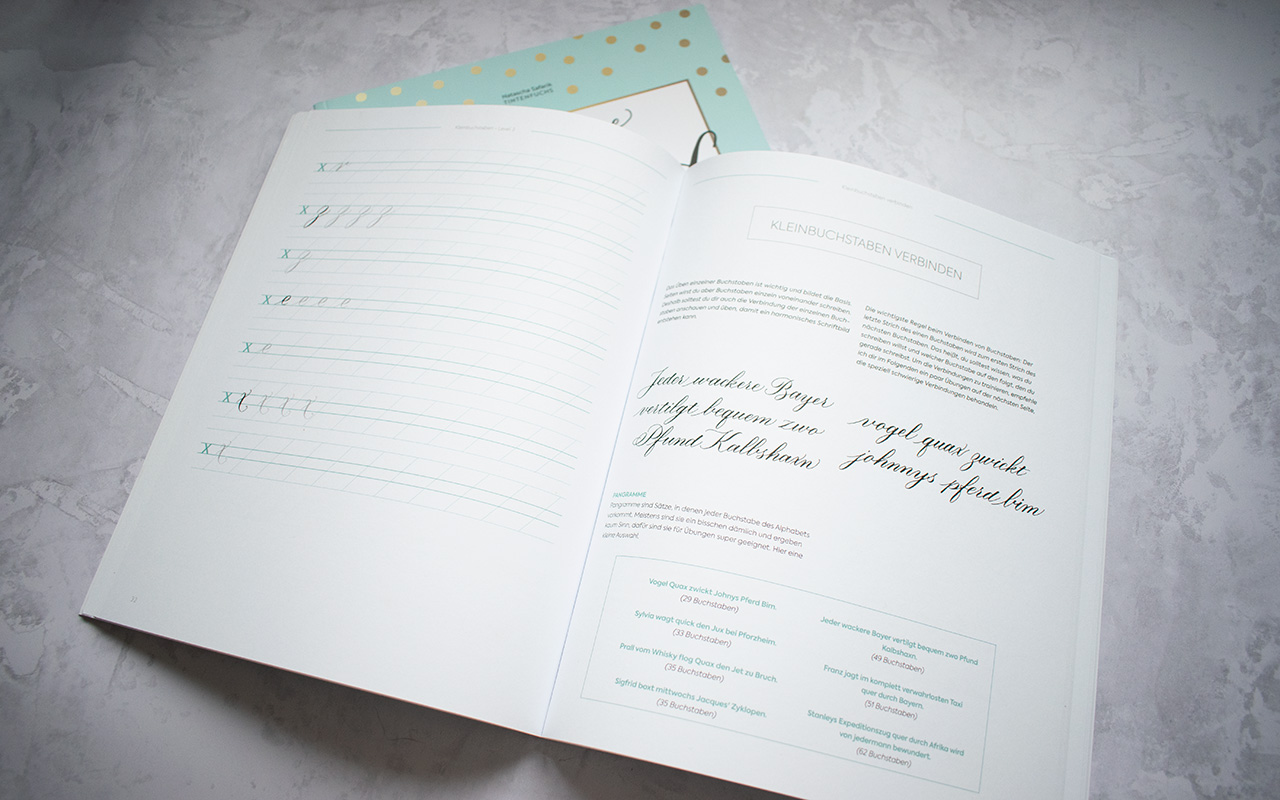 Natascha Safarik
TINTENFUCHS
Kleinbuchstaben Level 2
x r
x z z z z
x z
x e e e e
x e
x x x x x
x x
32
Kleinbuchstaben verbinden
KLEINBUCHSTABEN VERBINDEN
Das Üben einzelner Buchstaben ist wichtig und bildet die Basis.
Selten wirst du aber Buchstaben einzeln voneinander schreiben.
Deshalb solltest du dir auch die Verbindung der einzelnen Buch-
staben anschauen und üben, damit ein harmonisches Schriftbild
entstehen kann.
Die wichtigste Regel beim Verbinden von Buchstaben: Der
letzte Strich des einen Buchstaben wird zum ersten Strich des
nächsten Buchstaben. Das heißt, du solltest wissen, was du
schreiben willst und welcher Buchstabe auf den folgt, den du
gerade schreibst. Um die Verbindungen zu trainieren, empfehle
ich dir im Folgenden ein paar Übungen auf der nächsten Seite,
die speziell schwierige Verbindungen behandeln.
Jeder wackere Bayer
vertilgt bequem zwo
Pfund Kalbshaxn
vogel quax zwickt
johnnys pferd bim
PANGRAMME
Pangramme sind Sätze, in denen jeder Buchstabe des Alphabets
vorkommt. Meistens sind sie ein bisschen dämlich und ergeben
kaum Sinn, dafür sind sie für Übungen super geeignet. Hier eine
kleine Auswahl.
Vogel Quax zwickt Johnys Pferd Bim.
(29 Buchstaben)
Sylvia wagt quick den Jux bei Pforzheim.
(33 Buchstaben)
Proll vom Whisky flog Quax den Jet zu Bruch.
(35 Buchstaben)
Sigfrid boxt mittwochs Jacques' Zyklopen.
(35 Buchstaben)
Jeder wackere Bayer vertilgt bequem zwo Pfund
Kalbshaxn.
(49 Buchstaben)
Franz jagt im komplett verwahrlosten Taxi
quer durch Bayern.
(51 Buchstaben)
Stanleys Expeditionszug quer durch Afrika wird
von jedermann bewundert.
(62 Buchstaben)